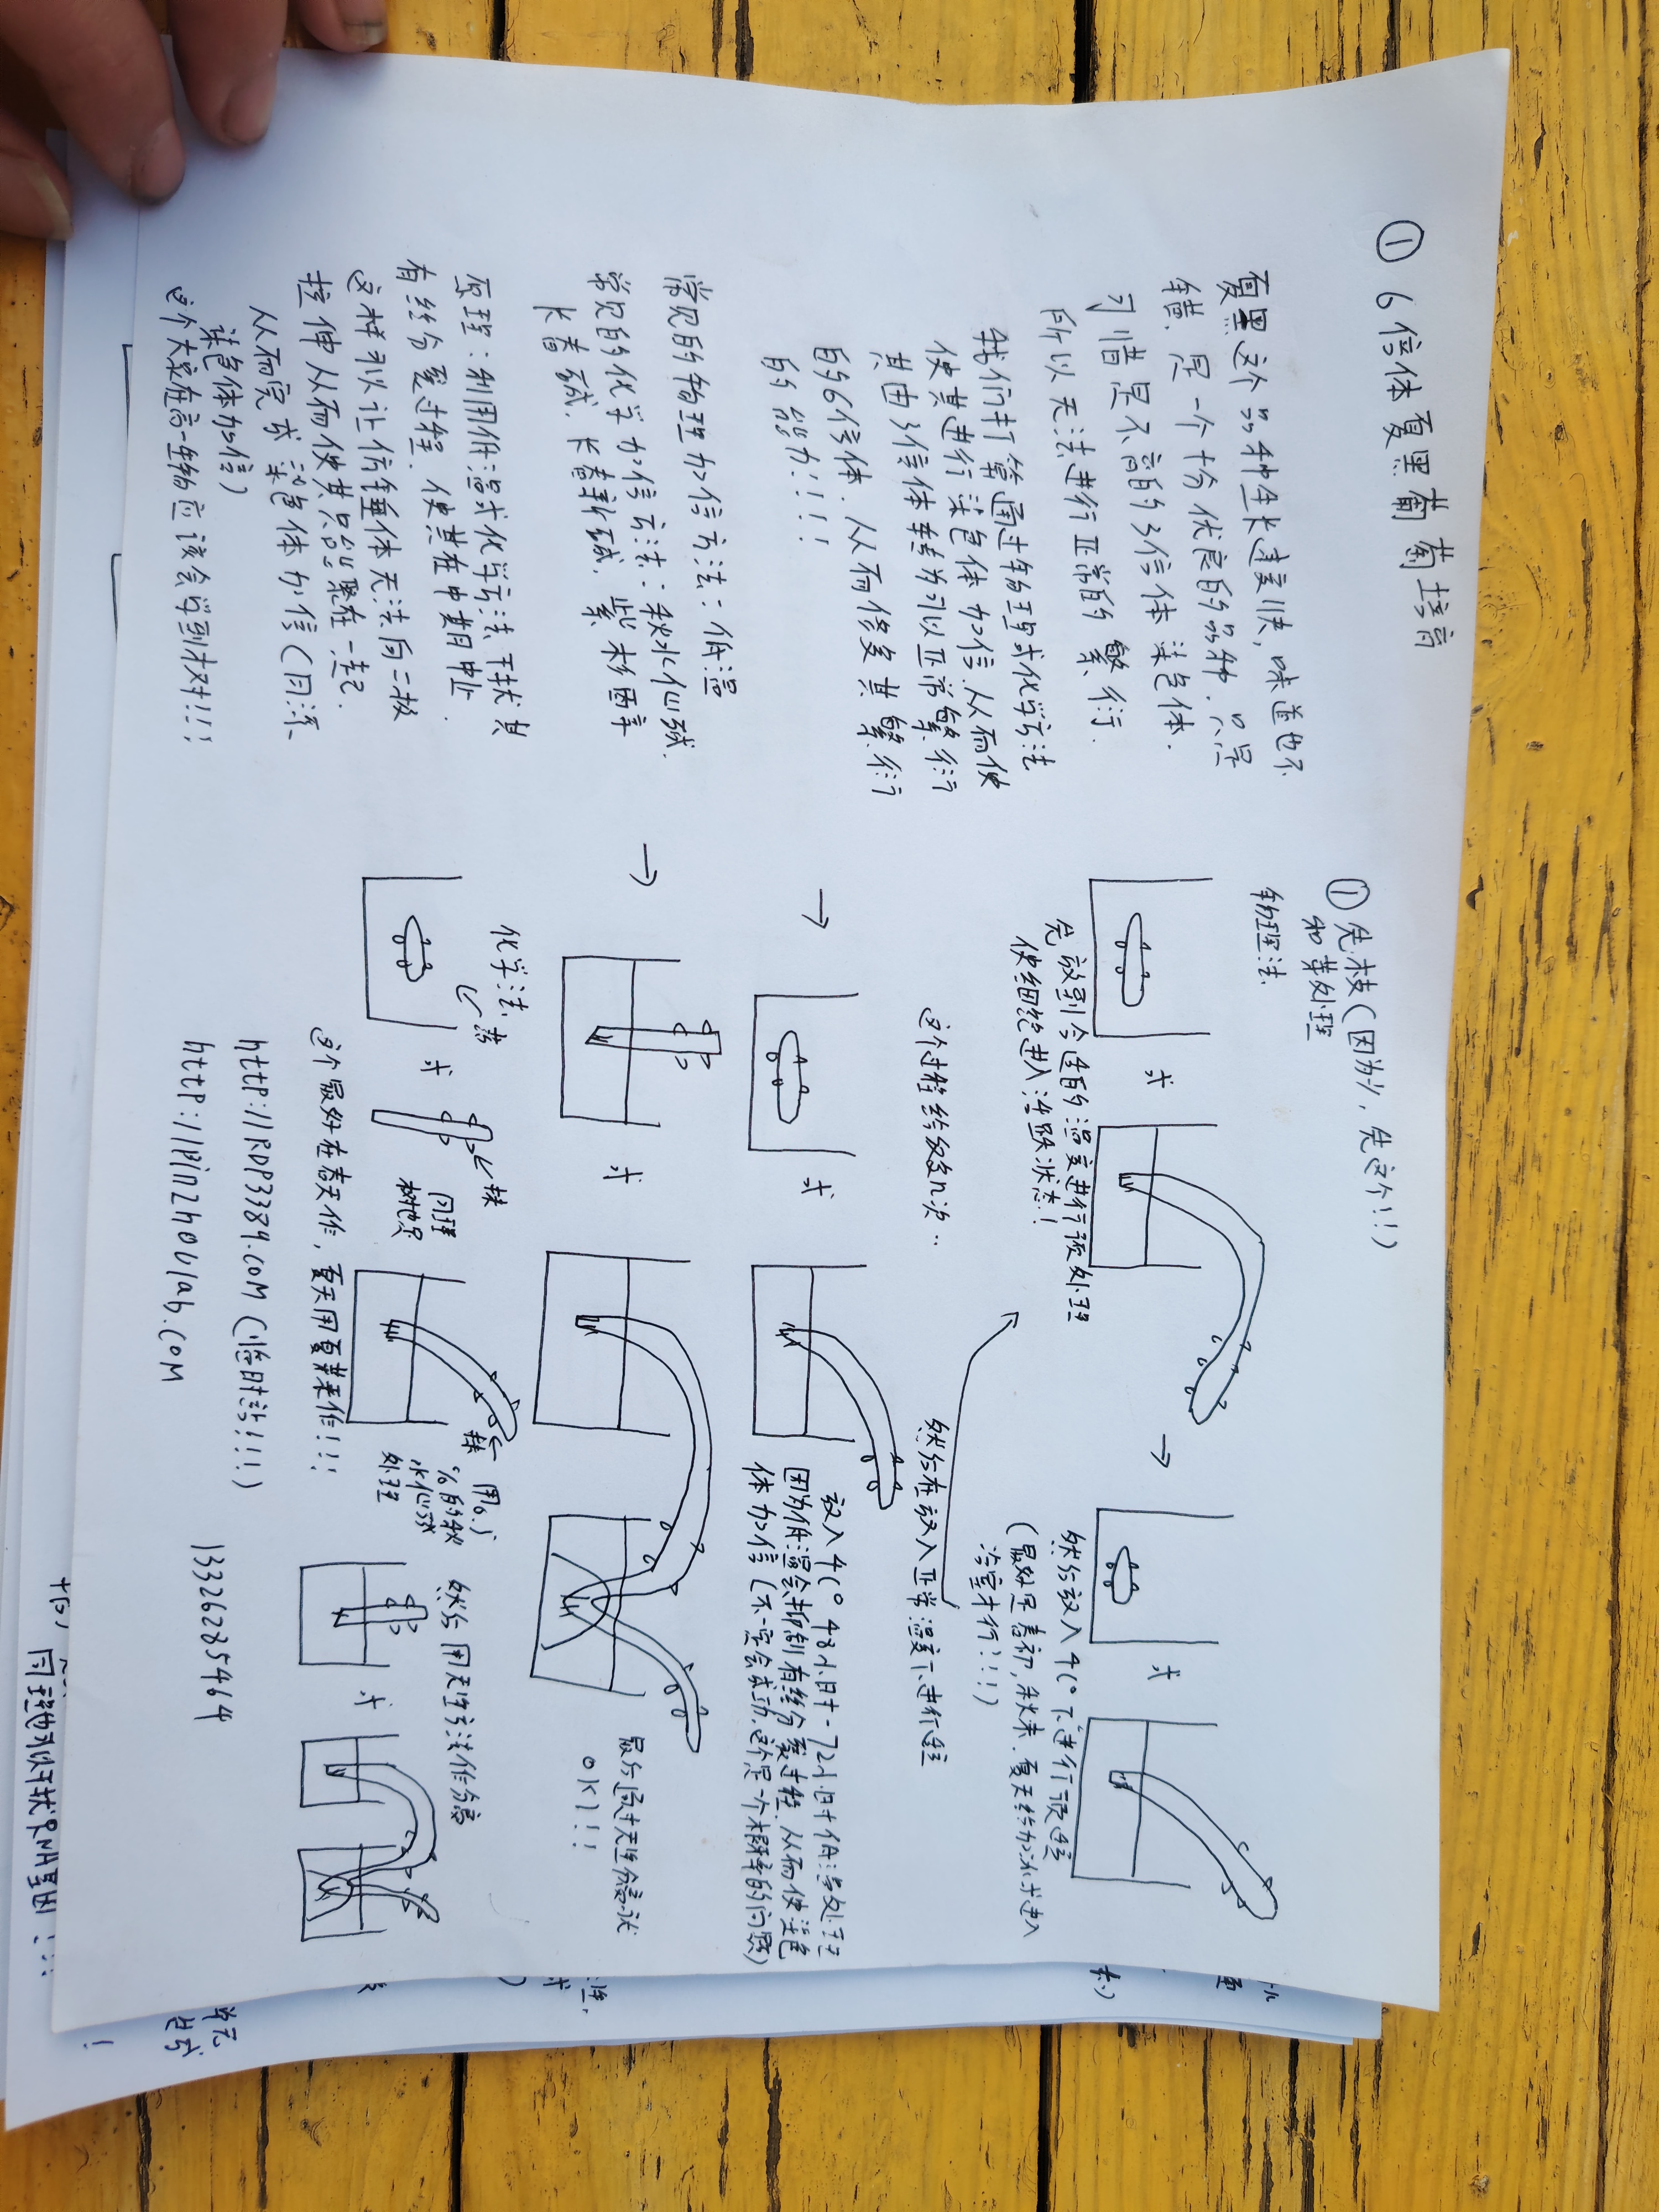 ① 6倍体夏黑葡萄培育
夏黑这个品种生长速度快,味道也不
错.是一个十分优良的品种.只是
可惜是不育的3倍体染色体.
所以无法进行正常的繁衍.
我们打算通过物理或化学方法
使其进行染色体加倍.从而使
其由3倍体转为可以正常繁衍
的6倍体.从而修复其繁衍
的能力!!!
常见的物理加倍方法:低温
常见的化学加倍方法:秋水仙碱.
长春碱.长春新碱.紫杉醇
原理:利用低温或化学方法干扰其
有丝分裂过程.使其在中期中止.
这样可以让纺锤体无法向二极
拉伸从而使其只能聚在一起.
从而完成染色体加倍(同源
染色体加倍)
这个大家在高一生物应该会学到才对!!!
①先.枝(因为少,先这个!!)
和芽处理
物理法
或
先放到合适的温度进行预处理
使细胞进入活跃状态!
→
或
然后放入4C°下进行预适应
(最好是春初,秋末.夏天给加冰或进入
冷室才行!!!)
然后在放入正常温度下进行适应
这个过程给复多n次..
→
或
放入4C° 48小时-72小时低温处理
因为低温会抑制有丝分裂过程.从而使染色
体加倍(不一定会成功.这个是一个概率的问题)
→
或
最后通过无性分离就
OK!!!
化学法
或
同理
用0.5
%的秋
水仙碱
处理
然后用无性方法作分离
或
这个最好在春天作,夏天用夏芽来作!!!
http://RDP3389.COM(临时站!!!)
http://pinzhoulab.com
13326285464
同理也可以干扰DNA复制!!!
单元